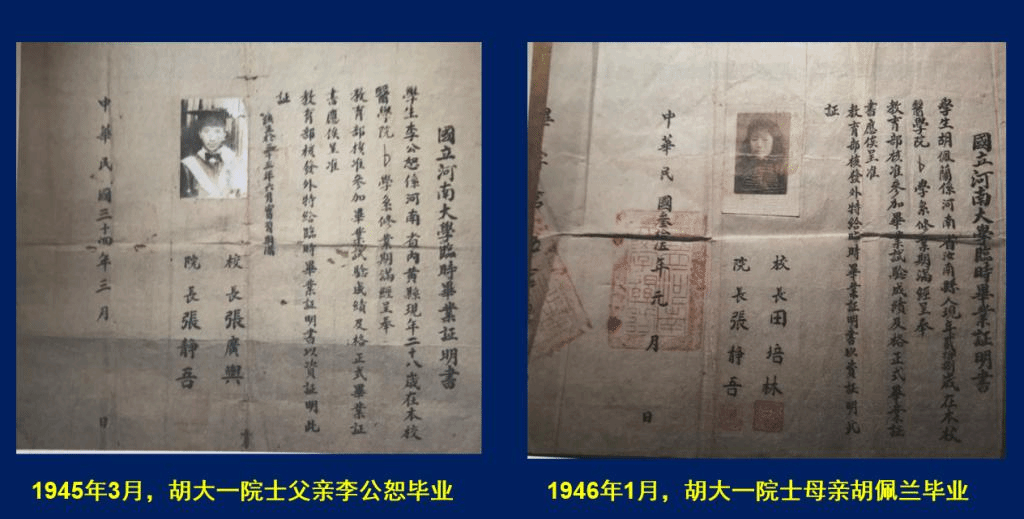 國立河南大學臨時畢業証明書
學生李公恕係河南省內黃縣現年二十八歲在本校
醫學院 學系修業期滿經呈奉
教育部核准參加畢業試驗成績及格正式畢業証
書應俟呈准
教育部核發外特給臨時畢業証明書以資証明此
証
校長張廣輿
院長張靜吾
中華民國三十四年三月 日
國立河南大學臨時畢業証明書
學生胡佩蘭係河南省汝南縣人現年貳拾捌歲在本校
醫學院 學系修業期滿經呈奉
教育部核准參加畢業試驗成績及格正式畢業証
書應俟呈准
教育部核發外特給臨時畢業証明書以資証明此
証
校長田培林
院長張靜吾
中華民國叁拾伍年元月 日
1945年3月，胡大一院士父亲李公恕毕业
1946年1月，胡大一院士母亲胡佩兰毕业